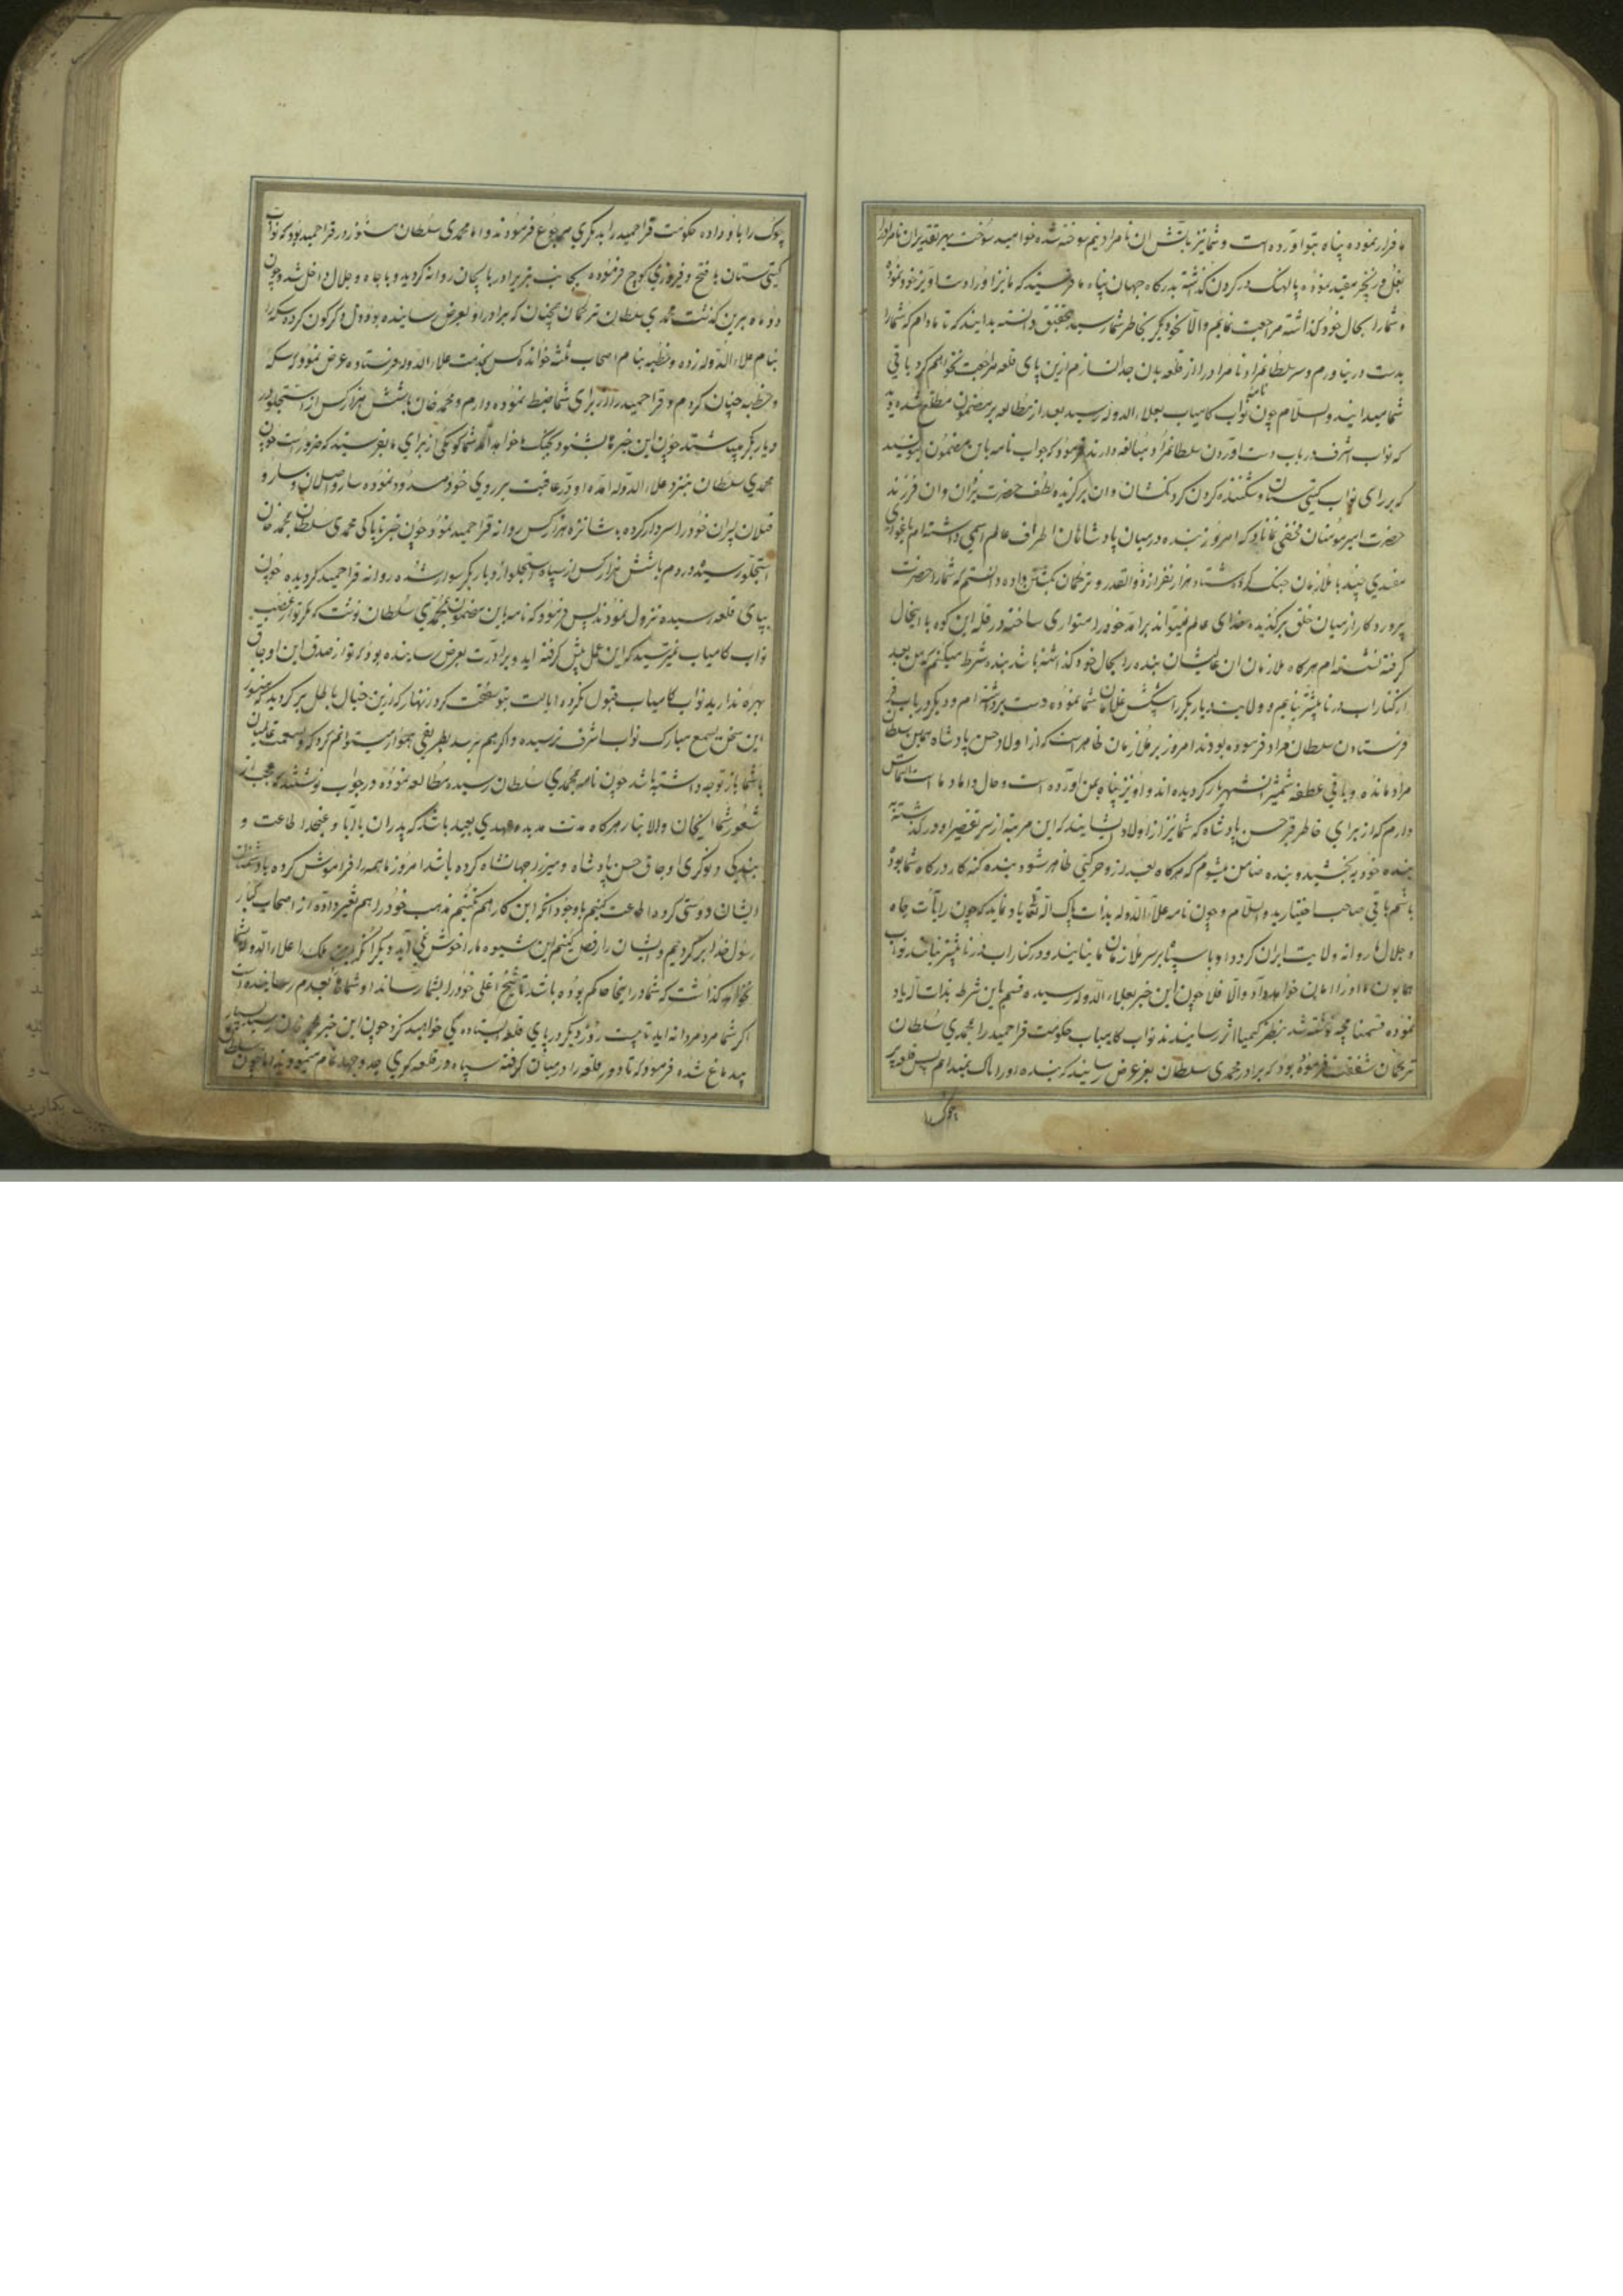 ما فرار نموده پناه بتو آورده است و شما نیز بآتش ان نامراد نیم سوخته شده خواهید سوخت بهر تقدیر ان نامراد را
بغل و زنجیر مقید نموده پالهنک در کردن کذاشته بدرکاه جهان پناه ما فرستید که ما نیز او را دست اویز خود نموده
و شما را بحال خود کذاشته مراجعت نمائیم والا انچه دیکر بخاطر شما رسید تحقیق دانسته بدانید که تا مادام که شما را
بدست در نیاورم و سر سلطانمراد نامراد را از قلعه بدن جدا نسازم ازین پای قلعه مراجعت نخواهم کرد باقی
شما میدانید والسلام چون نامه نواب کامیاب بعلاء الدوله رسید بعد از مطالعه بر مضمون مطلع شده
که نواب اشرف در باب دست اوردن سلطانمراد مبالغه دارند فرمود که جواب نامه باین مضمون بنویسید
که بر رای نواب کیتی ستان و شکننده کردن کردنکشان و ان برکزیده لطف حضرت یزدان وان فرزند
حضرت امیر مؤمنان مخفی نماناد که امروز بنده در میان پادشاهان اطراف عالم اسمی داشته ام
چند با ملازمان جنک کرده هشتاد هزار نفر از ذوالقدر و ترکمان بکشتن داده دانستم که شما را حضرت
پروردکار از میان خلق برکزیده خدای عالم نمیتواند برامد خود را متواری ساخته در قله این کوه با اینحال
کرفته نشسته ام هرکاه ملازمان ان عالیشان بنده را بحال خود کذاشته باشد بنده شرط میکنم که من بعد
از کنار اب درنا پیشتر نیایم و ولایت دیاربکر را پیکش غلامان شما نموده دست برداشته ام و دیکر در باب
فرستادن سلطان مراد فرموده بودند امروز بر ملازمان ظاهر است که از اولاد حسن پادشاه همین سلطان
مراد مانده و باقی علفه شمشیر ان شهریار کردیده اند و او نیز پناه بمن آورده است و حال داماد ما است التماس
دارم که از برای خاطر قبر حسن پادشاه که شما نیز از اولاد ایشانید که این مرتبه از سر تقصیر او درکذشته
ببنده خود ببخشید و بنده ضامن میشوم که هرکاه بعد از او حرکتی ظاهر شود بنده کنه کار درکاه شما بوده
باشم باقی صاحب اختیارید والسلام و چون نامه علاء الدوله بذات پاک اله تعالی یاد نماید که چون رایات جاه
و جلال ما روانه ولایت ایران کردد او با سپاه بر سر ملازمان ما نیاینده و در کنار اب درنا پیشتر نیایند نواب
همایون ما او را امان خواهد داد والا فلا چون این خبر بعلاء الدوله رسیده قسم باین شرط بذات اله یاد
نموده قسمنامچه نوشته شد بنظر کیمیا اثر رسانیدند نواب کامیاب حکومت قراحمید را بمحمدی سلطان
ترکمان شفقت فرموده بود که برادر محمدی سلطان بعز عرض رسانید که بنده او را
چوک را باو داده حکومت قراحمید را بدیکری مرجوع فرمودند و اما محمدی سلطان هنوز در قراحمید بود که نواب
کیتی ستان با فتح و فیروزی کوچ فرموده بجانب تبریز اذربایجان روانه کردید و با جاه و جلال داخل شد و چون
دو ماه برین کذشت محمدی سلطان ترکمان همچنان که برادر او بعرض رسانیده بود دل دکرکون کرده سکه را
بنام علاء الدوله زده و خطبه بنام اصحاب ثلثه خوانده کس بخدمت علاء الدوله فرستاده عرض نمود که سکه
و خطبه چنان کردم و قراحمید را از برای شما ضبط نموده دارم و محمد خان با شش هزار کس از استجلو در
دیاربکر میباشند چون این خبر ما بشنود بجنک ما خواهد آمد شما کومکی از برای ما بفرستید که ضرور است چون
محمدی سلطان بنزد علاء الدوله آمده او در عاقبت بر روی خود مسدود نموده ساروا صلان و
قپلان پسران خود را سردار کرده با شانزده هزار کس روانه قراحمید نمود چون خبر ناپاکی محمدی سلطان بمحمد خان
استجلو رسید در دم با شش هزار کس از سپاه استجلو از دیاربکر سوار شده روانه قراحمید کردیده چون
بپای قلعه رسیده نزول نمودند پس فرمود که نامه باین مضمون بمحمدی سلطان نوشت که مکر تو از غضب
نواب کامیاب نمیترسید که این عمل پیش کرفته اید و برادرت بعرض رسانیده بود که تو از صدق این اوجاق
بهره ندارید نواب کامیاب قبول نکرده ایالت بتو شفقت کرد زنهار که ازین خیال باطل برکردید که هنوز
این سخن بسمع مبارک نواب اشرف نرسیده و اکر هم برسد بطریقی هموار میتوانم کرد که
با شما باز توجه داشته باشد چون نامه بمحمدی سلطان رسیده مطالعه نموده در جواب نوشتند که عجب از
شعور شما ایخان والا تبار هرکاه مدت مدیده و عهدی بعید باشد که پدران با آبا و عنجدا اطاعت و
بندکی و نوکری اوجاق حسن پادشاه و میرزا جهانشاه کرده باشد امروز ما همه را فراموش کرده با دشمنان
ایشان دوستی کرده اطاعت کنیم با وجود انکه این کار هم بکنیم مذهب خود را هم تغییر داده از اصحاب کبار
رسول خدا برکردیم و ایشان را رفض کنیم این شیوه ما را خوش نمی آید و دیکر انکه این ملک را علاء الدوله بشما
نخواهد کذاشت که شما در اینجا حاکم بوده باشد تا شیخ اغلی خود را بشما رساند او شما را بعدم رسانیده است
اکر شما مرد مردانه اید تا بیست روز دیکر در پای قلعه ایستاده کی خواهید کرد چون این خبر بمحمد خان رسید بسیار
بیدماغ شده فرمود که تا دور قلعه را در میان کرفته سپاه در قلعه کیری جد و جهد تمام مینمودند اما چون